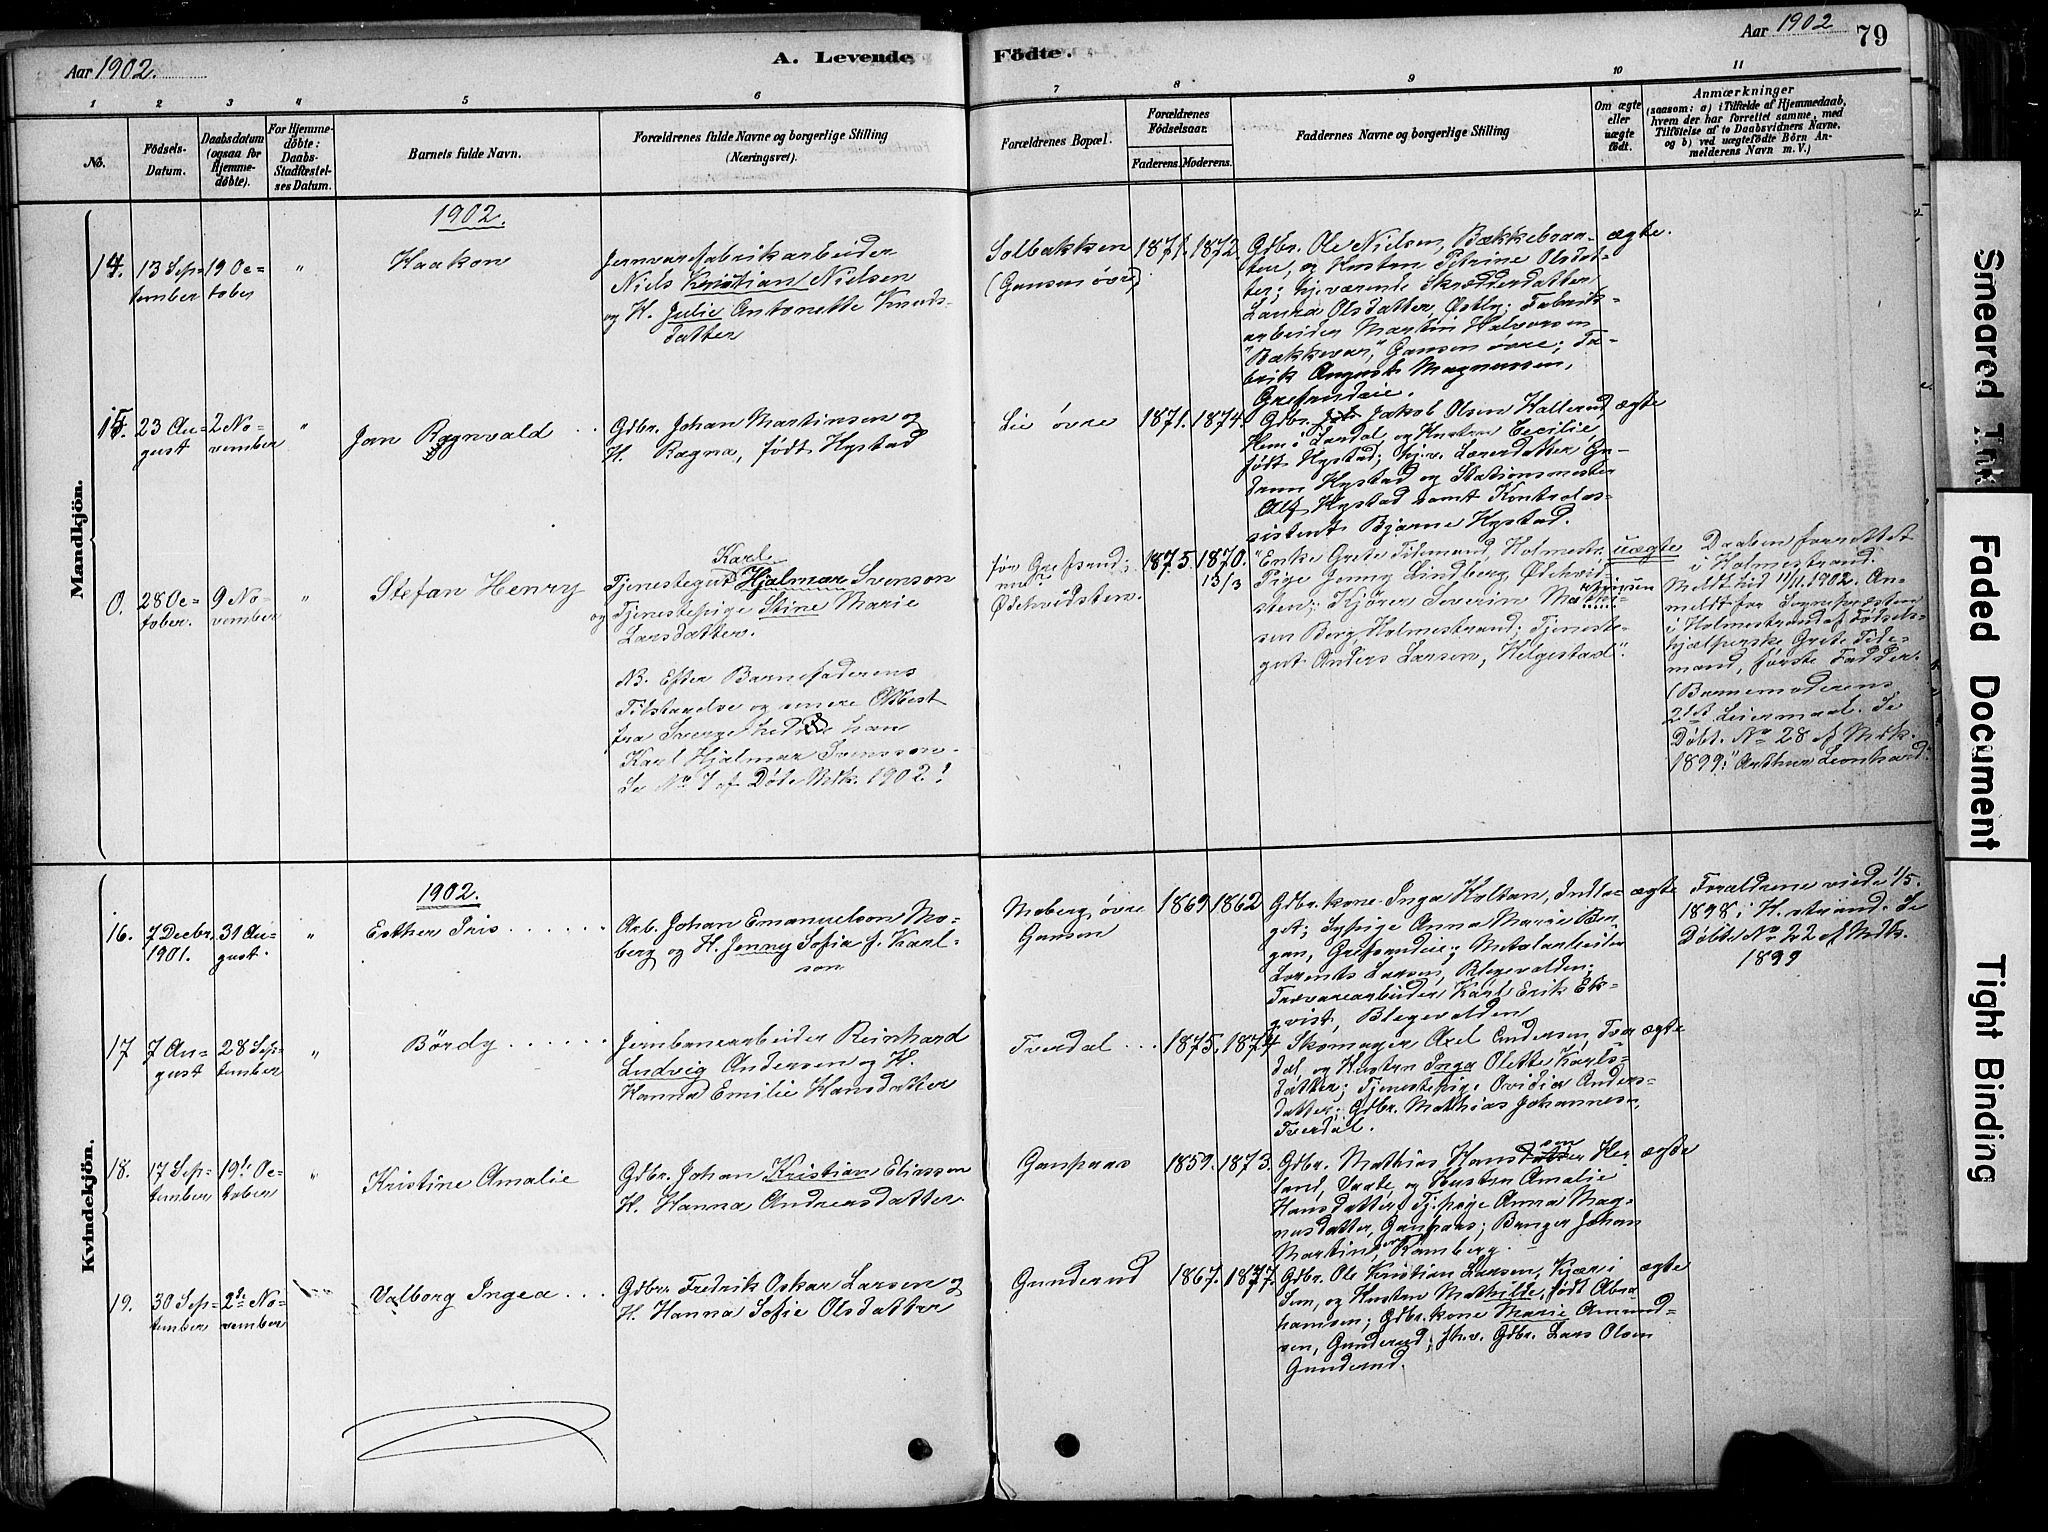 Aar 1902.
A. Levende
Födte.
Aar 1902
79
1 2 3 4 5 6 7 8 9 10 11
No.
Födsels-
Datum.
Daabsdatum
(ogsaa for
Hjemme-
døbte).
For Hjemme-
døbte:
Daabs-
Stadfæstel-
ses Datum.
Barnets fulde Navn.
Forældrenes fulde Navne og borgerlige Stilling
(Næringsvei).
Forældrenes Bopæl.
Forældrenes
Födselsaar.
Faderens. Moderens.
Faddernes Navne og borgerlige Stilling
Om ægte
eller
uægte
født.
Anmærkninger
(saasom: a) i Tilfælde af Hjemmedaab,
hvem der har forrettet samme, med
Tilføielse af to Daabsvidners Navne,
og b) ved uægtefödte Börn An-
melderens Navn m. V.)
Mandkjön.
1902.
14.
13 Sep-
tember
19 Oc-
tober
"
Haakon
Jernvarefabrikarbeider
Niels Kristian Nielsen
og H. Julie Antonette Knuds-
datter
Solbakken
(Gansen övre)
1871. 1872.
Gdbr. Ole Nielsen, Bækkebraa-
ten, og Kusten Petrine Olsdat-
ter; hjeværende Skrædderdatter
Laura Olsdatter, Østby; Fabrik-
arbeider Martin Halvorsen
"Bækkevar," Gansen övre; Fa-
brik August Magnussen,
Grefsrudeie.
ægte.
15.
23 Au-
gust
2 No-
vember
"
Jon Ragnvald
Gdbr. Johan Martinsen og
H. Ragna, født Hystad
Lie övre
1871. 1874.
Gdbr. Jakob Olsen Hallerud,
Hem i Lardal, og Hustru Cecilie,
født Hystad; hjv. Lærerdatter Gu-
drun Hystad og Stationsmester
Alf Hystad samt Kontoras-
sistent Bjarne Hystad.
ægte
0.
28 Oc-
tober.
9 No-
vember
"
Stefan Henry
Karl
Tjenestegut Hjalmar Svenson
og Tjenestepige Stine Marie
Larsdatter.
NB. Efter Barnefaderens
Tilstaaelse og senere Attest
fra Sverge hedte han
Karl Hjalmar Svensson.
Se No 7 af Døde Mdk. 1902.!
för Grefsrud;
nu
Ødekvidsten.
1875. 1870.
13/3
"Enke Grete Tidemand, Holmestr.
Pige Jenny Lindberg, Ødekvid-
sten; Kjører Severin Mathi-
sen Berg, Holmestrand; Tjeneste-
gut Anders Larsen, Helgestad".
uægte
Daaben forrettet
i Holmestrand.
Meldt hid 11/11.1902. An-
meldt for Sognepresten
i Holmestrand af Födsels-
hjælperske Grete Tide-
mand, første Fadder.
(Barnemoderens
2det Leiermaal. Se
Døbt. No 28 af Mdk.
1899: "Arthur Leonhard".
Kvindekjön.
1902.
16.
7 Decbr.
1901.
31 Au-
gust.
"
Esther Iris
Arb. Johan Emanuelson Mo-
berg og H. Jenny Sofia f. Karl-
son
Moberg, övre
Gansen
1869 1862
Gdbr.kone Inga Holtan, Indla-
get; Sypige Anna Marie Ben-
gan, Grefsrudeie; Metalarbeider
Lorents Larsen, Blegevolden;
Trævarearbeider Karl Erik Ek-
qvist, Blegevolden
ægte
Forældrene viede 1/5.
1898 i H.strand. Se
Døbte No 22 af Mdk.
1899
17
7 Au-
gust
28 Sep-
tember
"
Bördy
Jernbanearbeider Reinhard
Ludvig Andersen og H.
Hanna Emilie Hansdatter
Tverdal
1875. 1874
Skomager Axel Andersen, Tver-
dal, og Hustru Inga Olette Karls-
datter; Tjenestepige Ovidia Anders-
datter; Gdbr. Mathias Johannesen,
Tverdal.
ægte
18.
17 Sep-
tember
19de Oc-
tober
"
Kristine Amalie
Gdbr. Johan Kristian Eliassen
H. Hanna Andreasdatter.
Ganpaas
1859. 1873.
Gdbr. Mathias Hansen Her-
land, Vaale, og Hustru Amalie
Hansdatter; Tj.pige Anna Mag-
nusdatter, Ganpaas; Banger Johan
Martinsen, Ramberg.
ægte
19.
30 Sep-
tember
2den No-
vember
Valborg Ingea
Gdbr. Fredrik Oskar Larsen og
H. Hanna Sofie Olsdatter
Gunderud
1867. 1877.
Gdbr. Ole Kristian Larsen, Kjær i
Sem, og Hustru Mathilde, født Abra-
hamsen; Gdbr.kone Marie Amund-
sen, Gunderud; fh.v. Gdbr. Lars Olsen
Gunderud.
ægte
Smeared Ink
Faded Document
Tight Binding